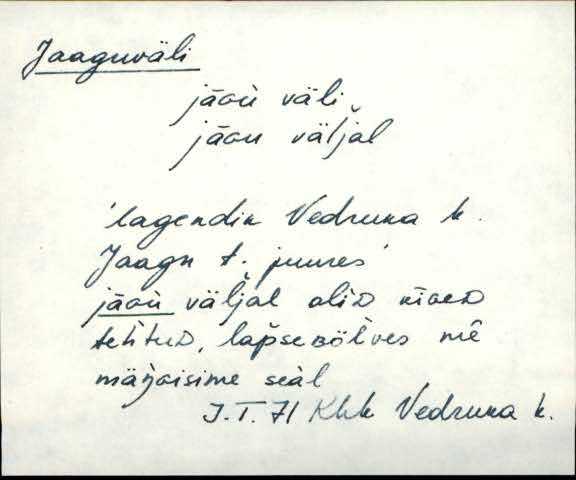 Jaaguväli
jāou väli
jāou väĺjal
'lagendik Vedruka k.
Jaagu t. juures'
jāou väĺjal olìD kiGeD
tehtuD, lapsepõĺves mē
mäŋGisime seàl
J.T. 71 Khk Vedruka k.